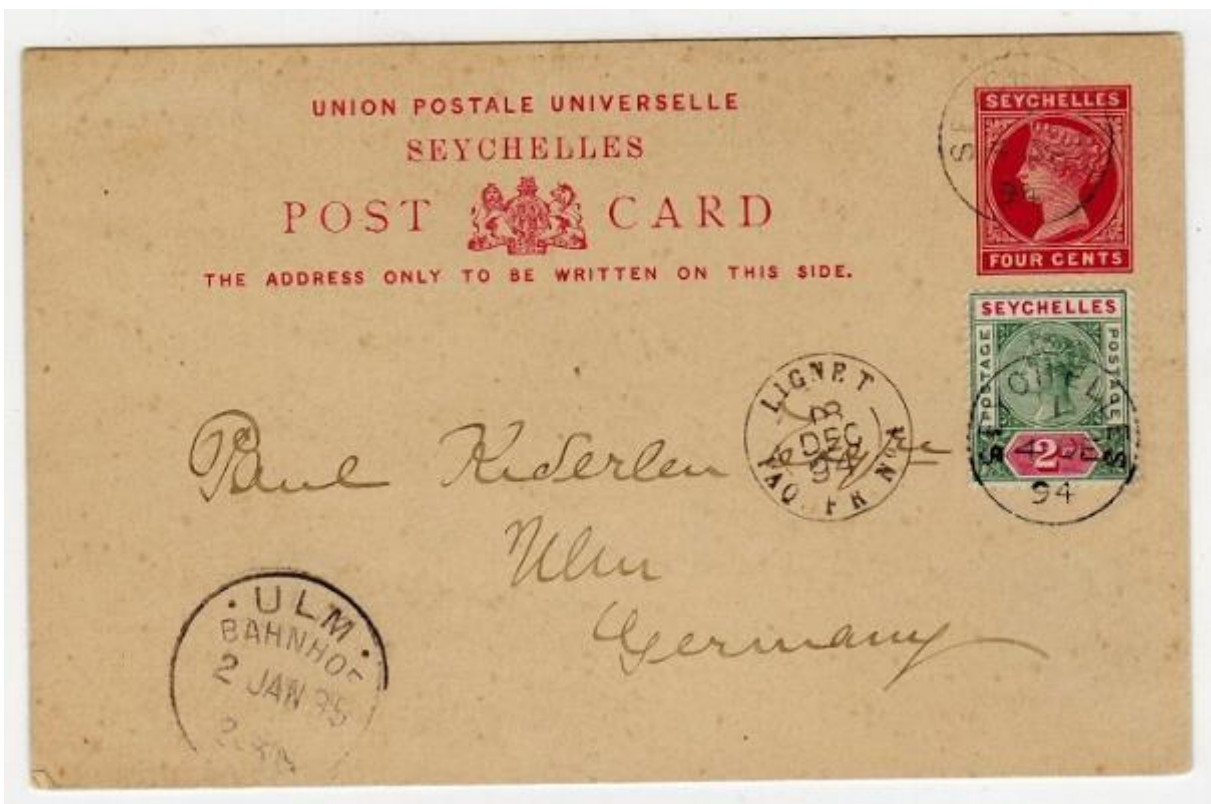 UNION POSTALE UNIVERSELLE
SEYCHELLES
POST CARD
THE ADDRESS ONLY TO BE WRITTEN ON THIS SIDE.
SEYCHELLES
FOUR CENTS
SEYCHELLES
POSTAGE
POSTAGE
2
SEYCHELLES
DE
94
LIGNE T
DEC
94
PAQ. FR. No
Paul Kiderlen
Ulm
Germany
ULM
BAHNHOF
2 JAN 95